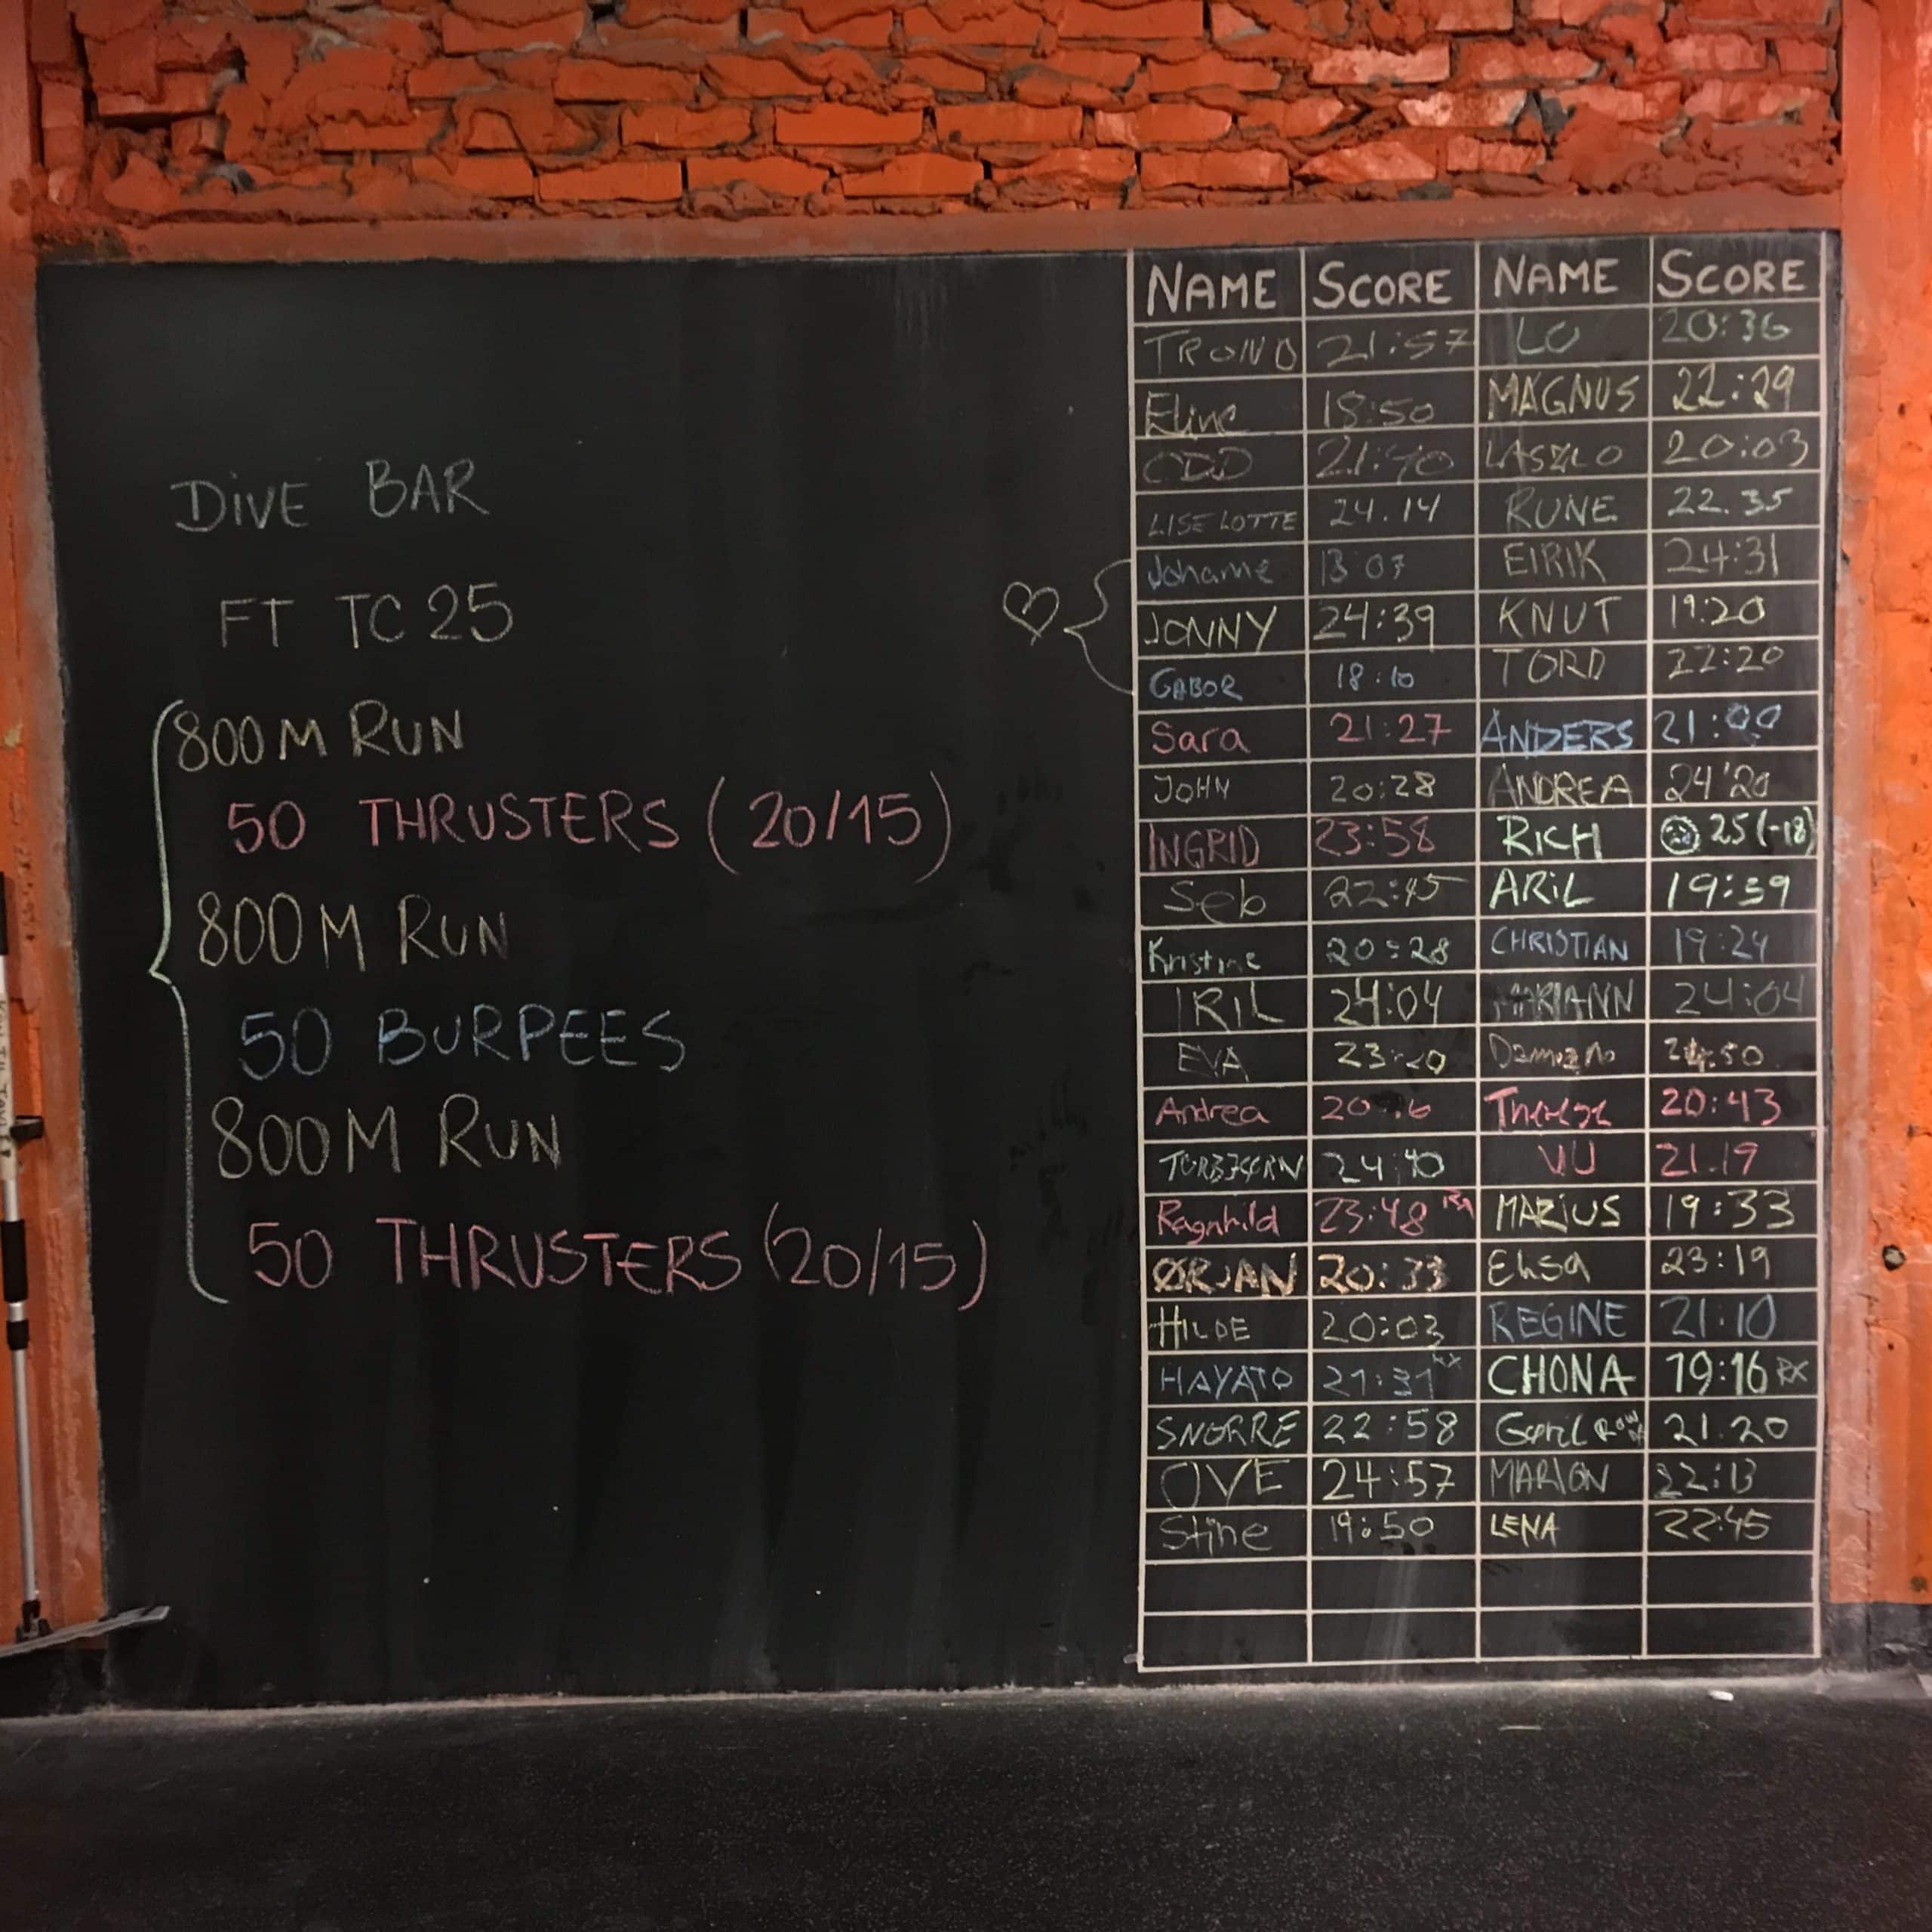 DIVE BAR
FT TC 25
800M RUN
50 THRUSTERS (20/15)
800M RUN
50 BURPEES
800M RUN
50 THRUSTERS (20/15)
NAME SCORE NAME SCORE
TROND 21:57 LO 20:36
Eline 18:50 MAGNUS 22:29
ODD 21:40 LASZLO 20:03
LISELOTTE 24.14 RUNE 22.35
Johanne EIRIK 24:31
JONNY 24:39 KNUT 19:20
GABOR 18:10 TORD 22:20
Sara 21:27 ANDERS 21:00
JOHN 20:28 ANDREA 24'20
INGRID 23:58 RICH 25 (-18)
Seb 22:45 ARIL 19:39
Kristine 20:28 CHRISTIAN 19:24
IRIL 24:04 MARIANN 24:04
EVA 23:20
Andrea Therese 20:43
TORBJØRN 24:40 VU 21.19
Ragnhild 23:48 Rx MARIUS 19:33
ØRJAN 20:33 Elisa 23:19
HILDE 20:03 REGINE 21:10
HAYATO 21:31 RX CHONA 19:16 RX
SNORRE 22:58 21.20
OVE 24:57 MARION 22:13
Stine 19:50 LENA 22:45